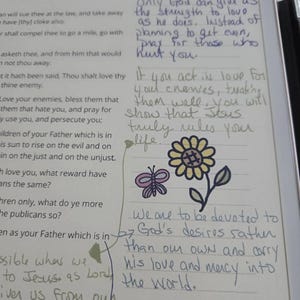 an will sue thee at the law, and take away
n have (thy) cloke also.
r shall compel thee to go a mile, go with
asketh thee, and from him that would
n not thou away.
t it hath been said, Thou shalt love thy
thine enemy.
Love your enemies, bless them that
them that hate you, and pray for
y use you, and persecute you;
hildren of your Father which is in
is sun to rise on the evil and on
in on the just and on the unjust.
h love you, what reward have
ans the same?
hren only, what do ye more
he publicans so?
en as your Father which is in
ssible when we
to Jesus as Lord
ives us from our
only God can give us
the strength to love
as he does. Instead of
planning to get even,
pray for those who
hurt you.
If you act in love for
your enemies, treating
them well, you will
show that Jesus
truly rules your
life.
we are to be devoted to
God's desires rather
than our own and carry
his love and mercy into
the world.